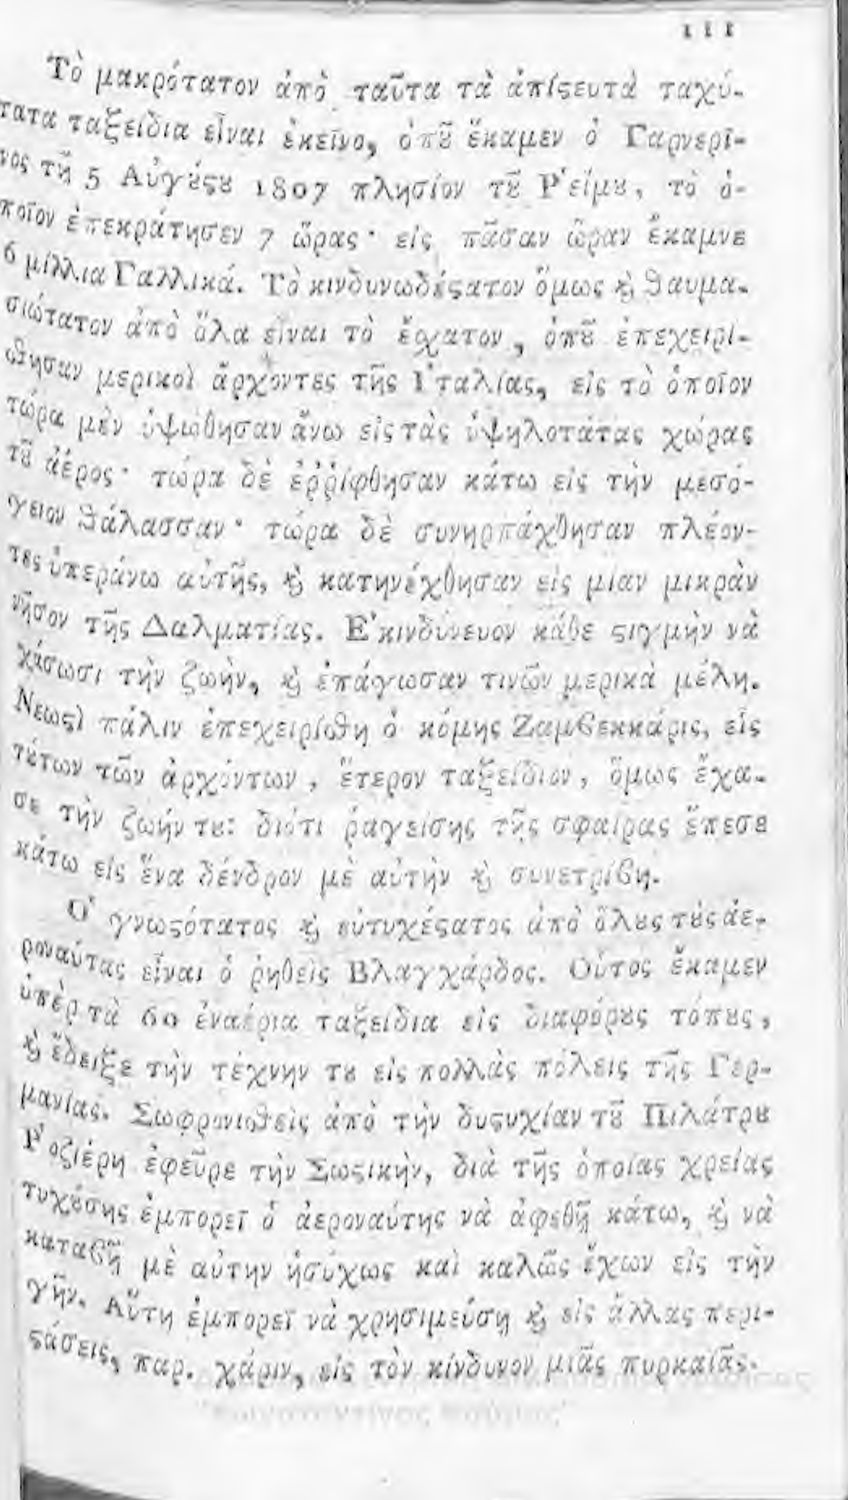 111
Τὸ μακρότατον ἀπὸ ταῦτα τὰ ἀπίϛευτὰ ταχύ-
τατα ταξείδια εἶναι ἐκεῖνο, ὁπȣ͂ ἔκαμεν ὁ Γαρνερῖ-
νος τῇ 5 Αὐγȣ́ϛȣ 1807 πλησίον τȣ͂ Ῥείμȣ, τὸ ὁ-
ποῖον ἐπεκράτησεν 7 ὥρας· εἰς πᾶσαν ὥραν ἔκαμνε
6 μίλλια Γαλλικά. Τὸ κινδυνωδέϛατον ὅμως ϗ θαυμα-
σιώτατον ἀπὸ ὅλα εἶναι τὸ ἔχατον, ὁπȣ͂ ἐπεχειρί-
σθησαν μερικοὶ ἄρχοντες τῆς Ἰταλίας, εἰς τὸ ὁποῖον
τώρα μὲν ὑψώθησαν ἄνω εἰς τὰς ὑψηλοτάτας χώρας
τȣ͂ ἀέρος· τώρα δὲ ἐῤῥίφθησαν κάτω εἰς τὴν μεσό-
γειον θάλασσαν· τώρα δὲ συνηρπάχθησαν πλέον-
τες ὑπεράνω αὐτῆς, ϗ κατηνέχθησαν εἰς μίαν μικρὰν
νῆσον τῆς Δαλματίας. Ἐκινδύνευον κάθε ϛιγμὴν νὰ
χάσωσι τὴν ζωὴν, ϗ ἐπάγωσαν τινῶν μερικὰ μέλη.
Νεωϛὶ πάλιν ἐπεχειρίσθη ὁ κόμης Ζαμβεκκάρις, εἷς
τȣ́των τῶν ἀρχόντων, ἕτερον ταξείδιον, ὅμως ἔχα-
σε τὴν ζωήν τȣ: διότι ῥαγείσης τῆς σφαίρας ἔπεσε
κάτω εἰς ἕνα δένδρον μὲ αὐτὴν ϗ συνετρίβη.
Ὁ γνωϛότατος ϗ εὐτυχέϛατος ἀπὸ ὅλȣς τȣ̀ς ἀε-
ροναύτας εἶναι ὁ ῥηθεὶς Βλαγχάρδος. Οὗτος ἔκαμεν
ὑπὲρ τὰ 60 ἐναέρια ταξείδια εἰς διαφόρȣς τόπȣς,
ϗ ἔδειξε τὴν τέχνην τȣ εἰς πολλὰς πόλεις τῆς Γερ-
μανίας. Σωφρονισθεὶς ἀπὸ τὴν δυϛυχίαν τȣ͂ Πιλάτρȣ
Ῥοζιέρη ἐφεῦρε τὴν Σωϛικὴν, διὰ τῆς ὁποίας χρείας
τυχȣ́σης ἐμπορεῖ ὁ ἀεροναύτης νὰ ἀφεθῇ κάτω, ϗ νὰ
καταβῇ μὲ αὐτην ἡσύχως καὶ καλῶς ἔχων εἰς τὴν
γῆν. Αὕτη ἐμπορεῖ νὰ χρησιμεύσῃ ϗ εἰς ἄλλας περι-
ϛάσεις, παρ. χάριν, εἰς τὸν κίνδυνον μιᾶς πυρκαϊᾶς.